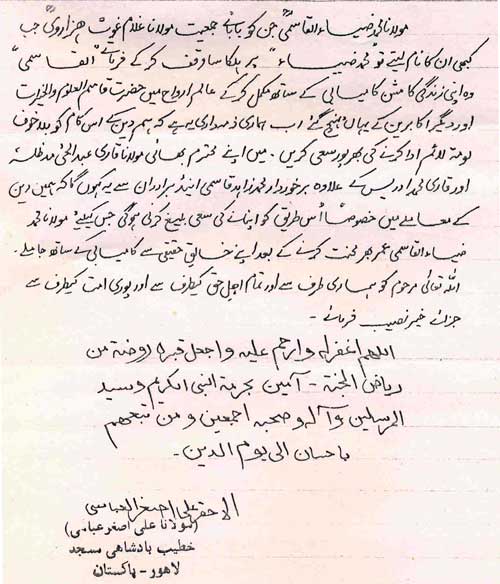 مولانا محمد ضیاء القاسمیؒ جن کو بابائے جمعیت مولانا غلام غوث ہزارویؒ جب
کبھی ان کا نام لیتے تو "محمد ضیاء" پر ہلکا سا وقف کر کے فرماتے "القاسمی"
وہ اپنی زندگی کا مشن کامیابی کے ساتھ مکمل کر کے عالم ارواح میں حضرت قاسم العلوم والخیرات
اور دیگر اکابرین کے یہاں پہنچ گئے اب ہماری ذمہ داری یہ ہے کہ ہم دین کے اس کام کو بلا خوف
لومۃ لائم ادا کرنے کی بھرپور سعی کریں۔ میں اپنے محترم بھائی مولانا قاری عبدالحئی مدظلہ
اور قاری محمد ادریس کے علاوہ برخوردار محمد زاہد قاسمی اینڈ برادران سے یہ کہوں گا کہ ہمیں دین
کے معاملے میں خصوصاً اُس طریق کو اپنانے کی سعی بلیغ کرنی ہوگی جس کیلئے مولانا محمد
ضیاء القاسمی عمر بھر محنت کرنے کے بعد اپنے خالق حقیقی سے کامیابی کے ساتھ جا ملے۔
اللہ تعالیٰ مرحوم کو ہماری طرف سے اور تمام اہل حق کیطرف سے اور پوری امت کیطرف سے
جزائے خیر نصیب فرمائے۔
اللهم اغفر له وارحم عليه واجعل قبره روضة من
رياض الجنة - آمین بحرمة النبی الكريم وسيد
المرسلين وآله وصحبه اجمعين ومن تبعهم
باحسان الى يوم الدين۔
الاحقر علی اصغر العباسی
(مولانا علی اصغر عباسی)
خطیب بادشاہی مسجد
لاہور - پاکستان